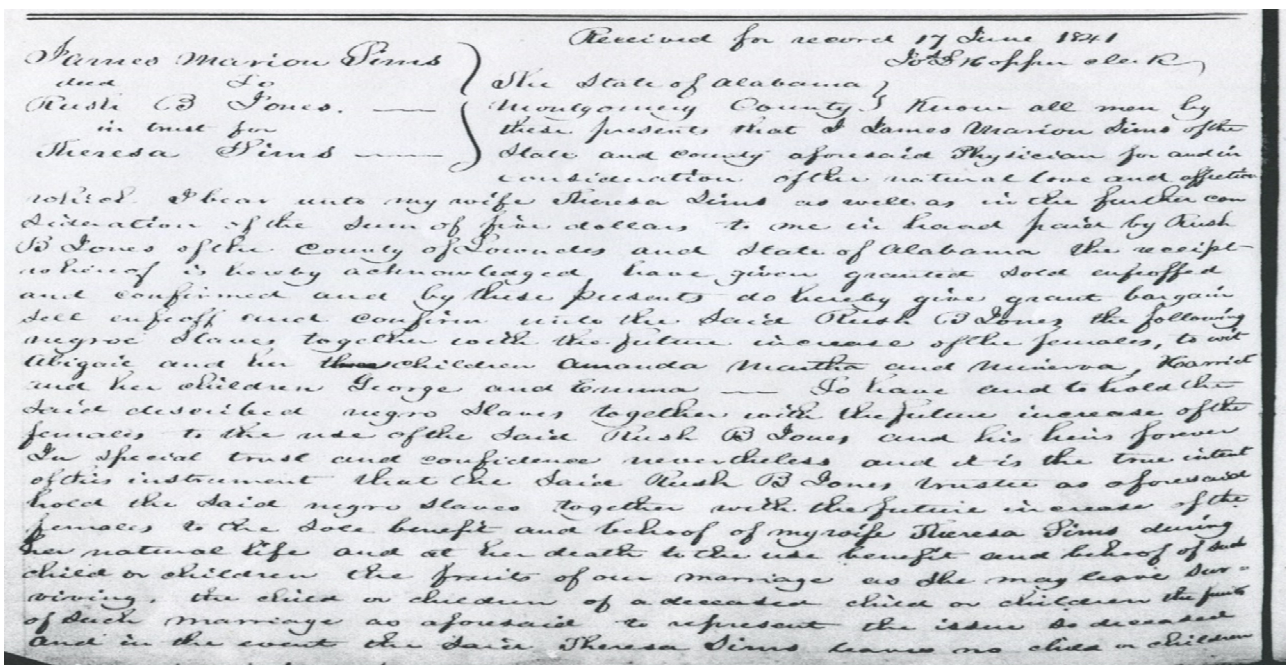 Received for record 17 June 1841
clerk
James Marion Sims
deed To
Rush B Jones.
in trust for
Theresa Sims
The State of Alabama
Montgomery County Know all men by
these presents that I James Marion Sims of the
State and county aforesaid Physician for and in
consideration of the natural love and affection
which I bear unto my wife Theresa Sims as well as in the further con
sideration of the Sum of five dollars to me in hand paid by Rush
B Jones of the County of Lowndes and State of Alabama the receipt
whereof is hereby acknowledged, have given granted sold enfeoffed
and confirmed and by these presents do hereby give grant bargain
sell enfeoff and confirm unto the said Rush B Jones the following
negroe Slaves together with the future increase of the females, to wit
Abigail and her children Amanda Martha and Minerva, Harriet
and her children George and Emma — To have and to hold the
said described negro Slaves together with the future increase of the
females to the use of the said Rush B Jones and his heirs forever
In special trust and confidence nevertheless and it is the true intent
of this instrument that the said Rush B Jones trustee as aforesaid
hold the said negro slaves together with the future increase of the
females to the sole benefit and behoof of my wife Theresa Sims during
her natural life and at her death to the use benefit and behoof of such
child or children the fruits of our marriage as she may leave sur-
viving, the child or children of a deceased child or children the fruits
of such marriage as aforesaid to represent the issue so deceased
and in the event the said Theresa Sims leaves no child or children